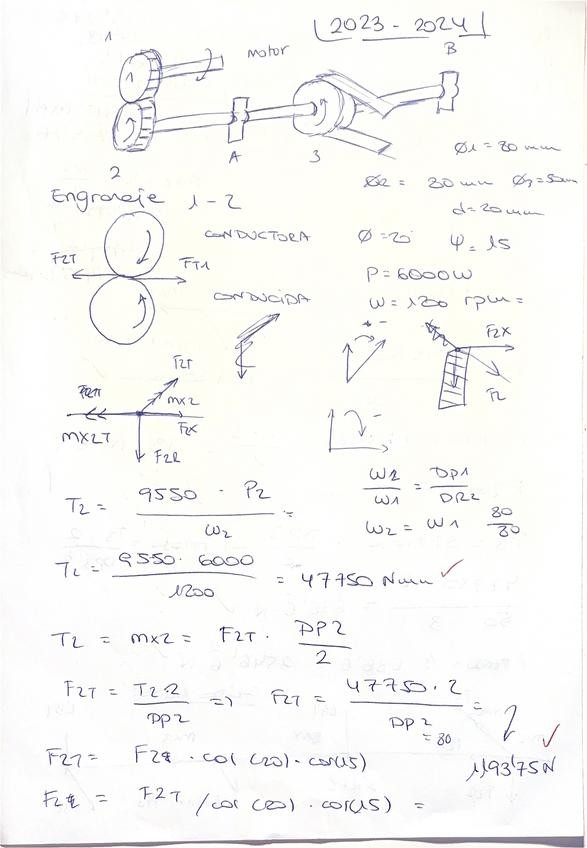 2023 - 2024
1
motor
B
2
A
3
Ø1 = 80 mm
Ø2 = 80 mm Ø3 = 50mm
d = 20 mm
Engranaje 1 - 2
CONDUCTORA
Ø = 20° Ψ = 15
F2T
FT1
P = 6000 W
CONDUCIDA
ω = 1200 rpm =
F2X
F2
F2T
MX2
F2X
MX2T
F2R
T2 = 9550 · P2 / ω2 =
ω2 / ω1 = DP1 / DP2
ω2 = ω1 80/80
T2 = 9550 · 6000 / 1200 = 47750 Nmm ✓
T2 = mx2 = F2T · DP2 / 2
F2T = T2·2 / DP2 => F2T = 47750 · 2 / DP2 = 80 =
1193'75 N ✓
F2T = F2t · cos (20) · cos(15)
F2t = F2T / cos (20) · cos(15) =